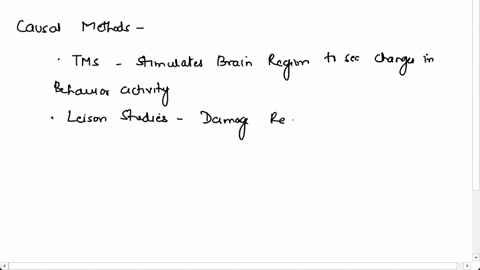 Causal Methods -
• TMS - Stimulates Brain Region to see changes in
Behavior activity
• Leison Studies - Damage Re